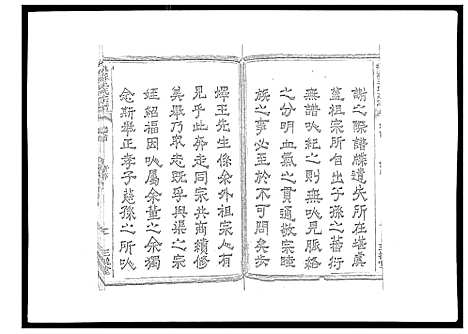 謝之際譜牒遺失所在堪虞
蓋祖宗所自出子孫之蕃衍
無譜以紀之則無以見脈絡
之分明血氣之貫通敬宗睦
族之事必至於不可問矣步
墀王先生係余外祖宗人有
見乎此奔走同宗共商續修
美舉乃眾志既孚與渠之宗
姪紹福因以屬余董之余獨
念斯舉正孝子慈孫之所以